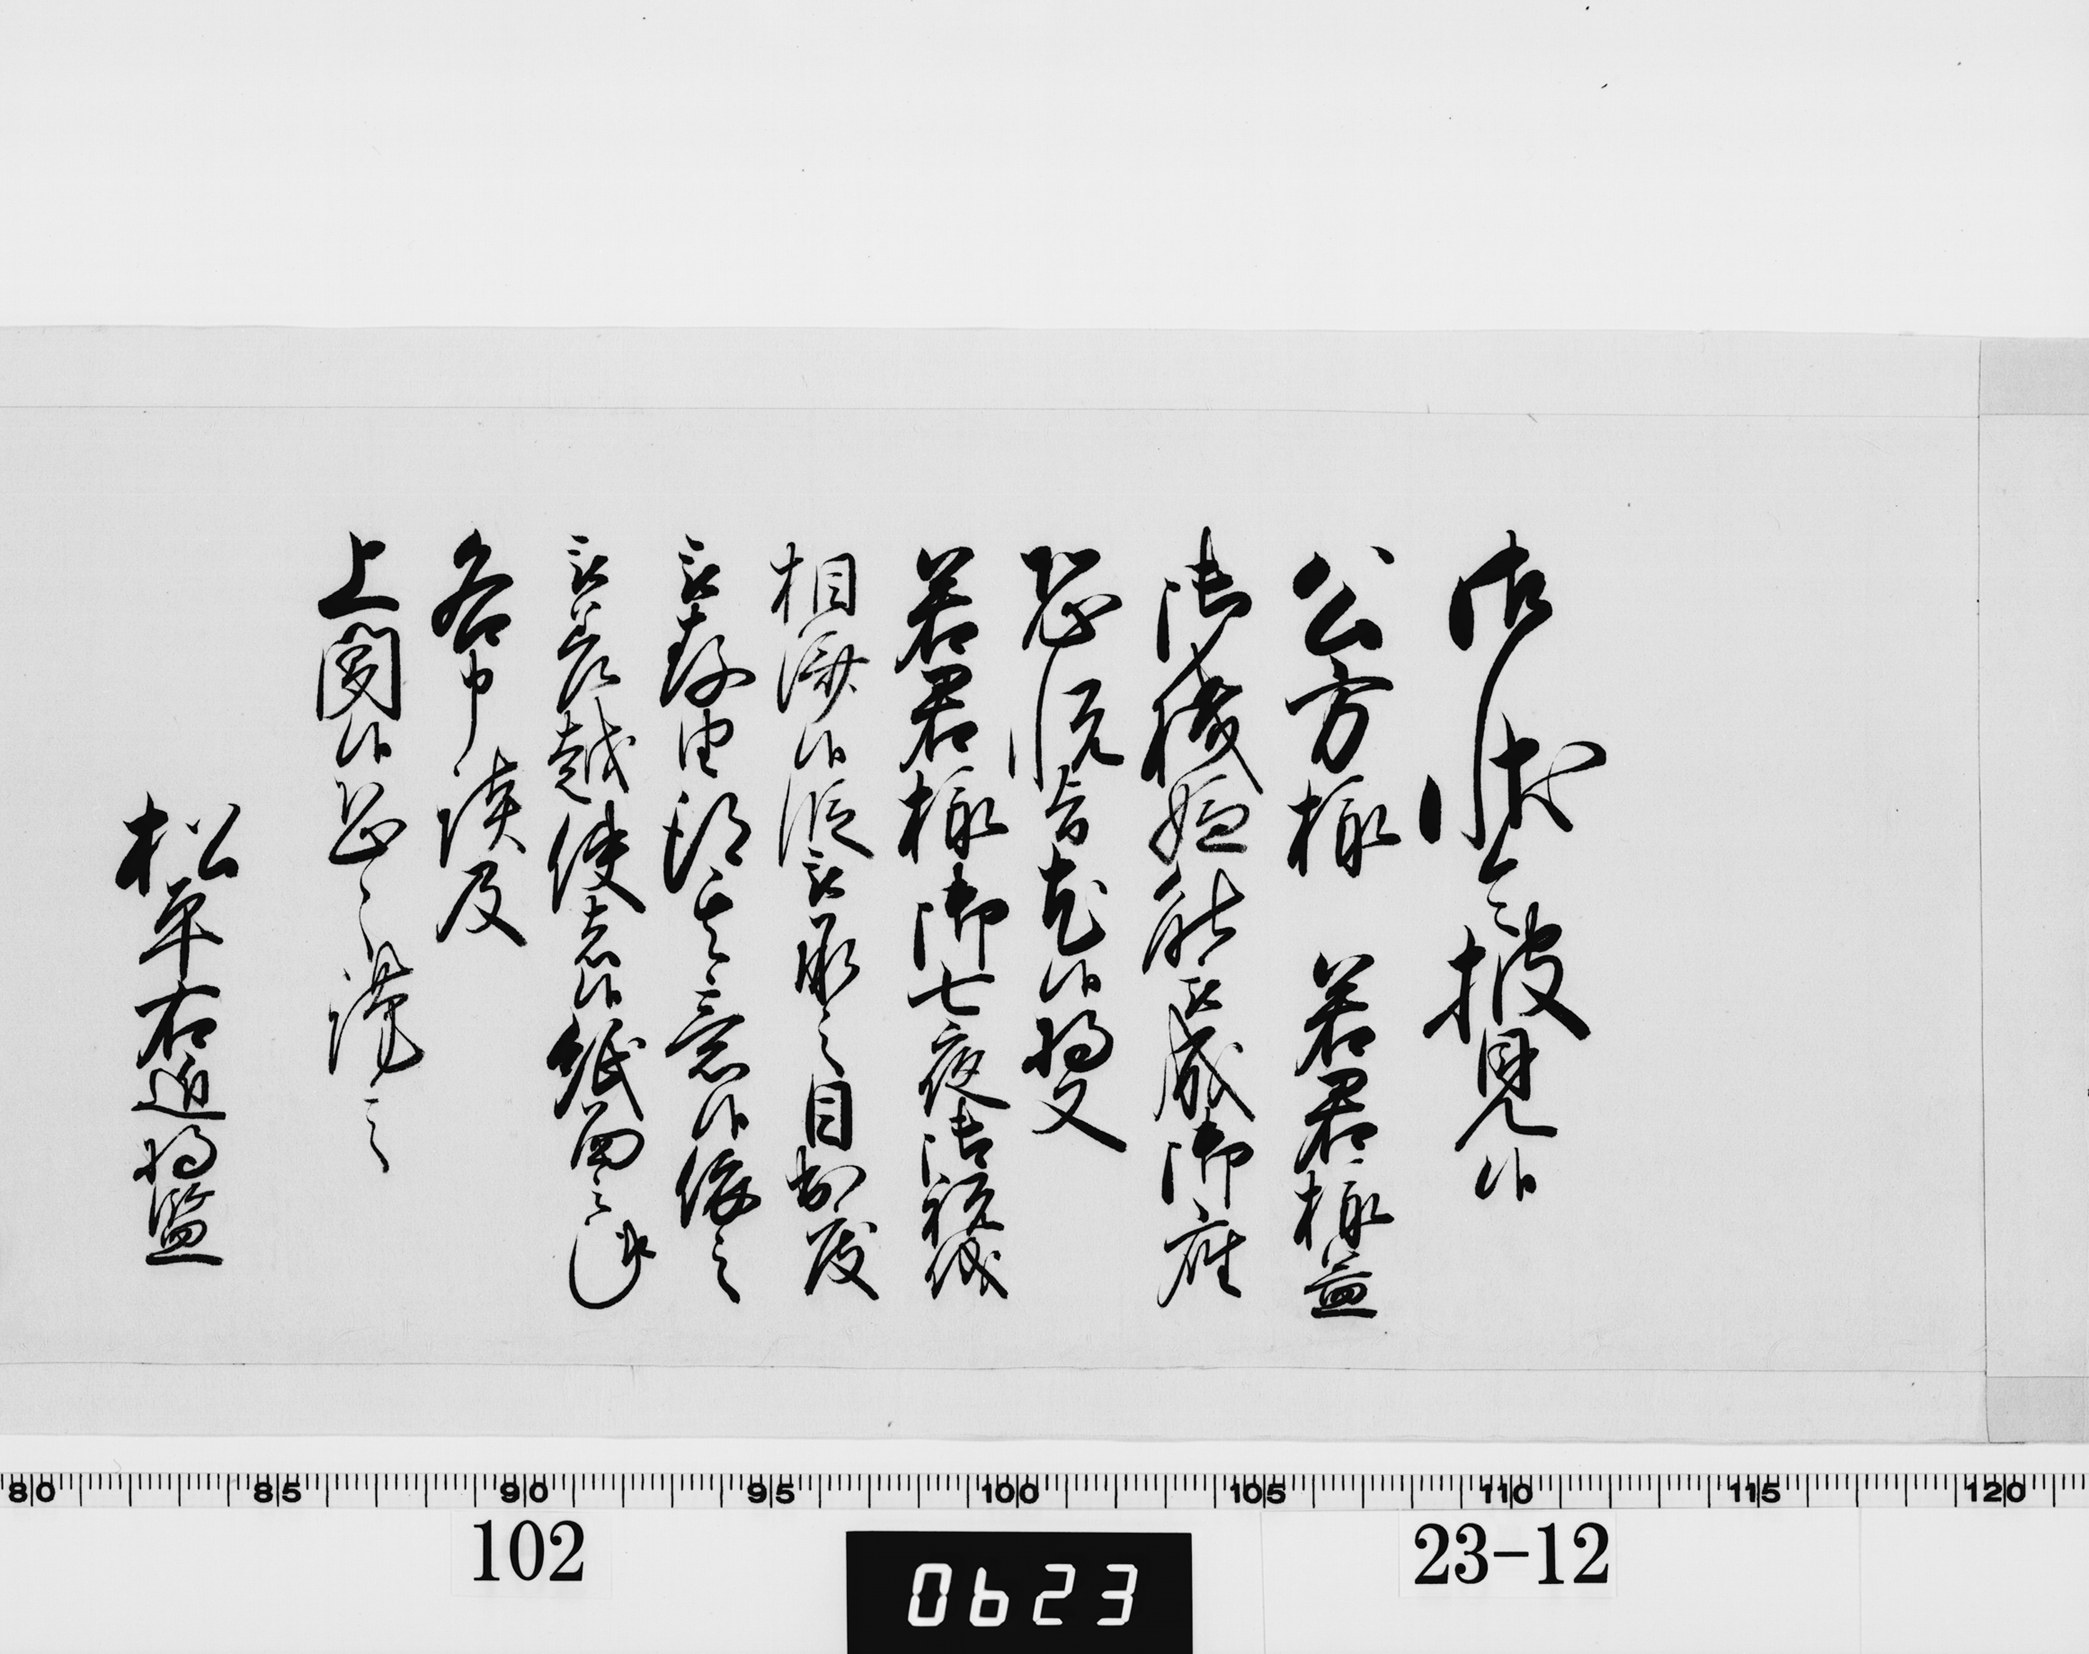 御状令披見候
公方様 若君様益
御機嫌能被成御座
恐悦旨尤候将又
若君様御七夜御祝儀
相済候段被承之目出度
被存由得其意候依之
被差越使者候紙面之趣
各申談及
上聞候恐々謹言
松平右近将監
80 85 90 95 100 105 110 115 120
102
0623
23-12